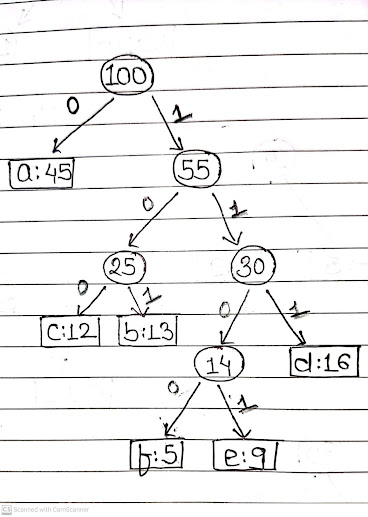 100
0 1
a:45 55
0 1
25 30
0 1 0 1
c:12 b:13
14 d:16
0 1
f:5 e:9
CS Scanned with CamScanner